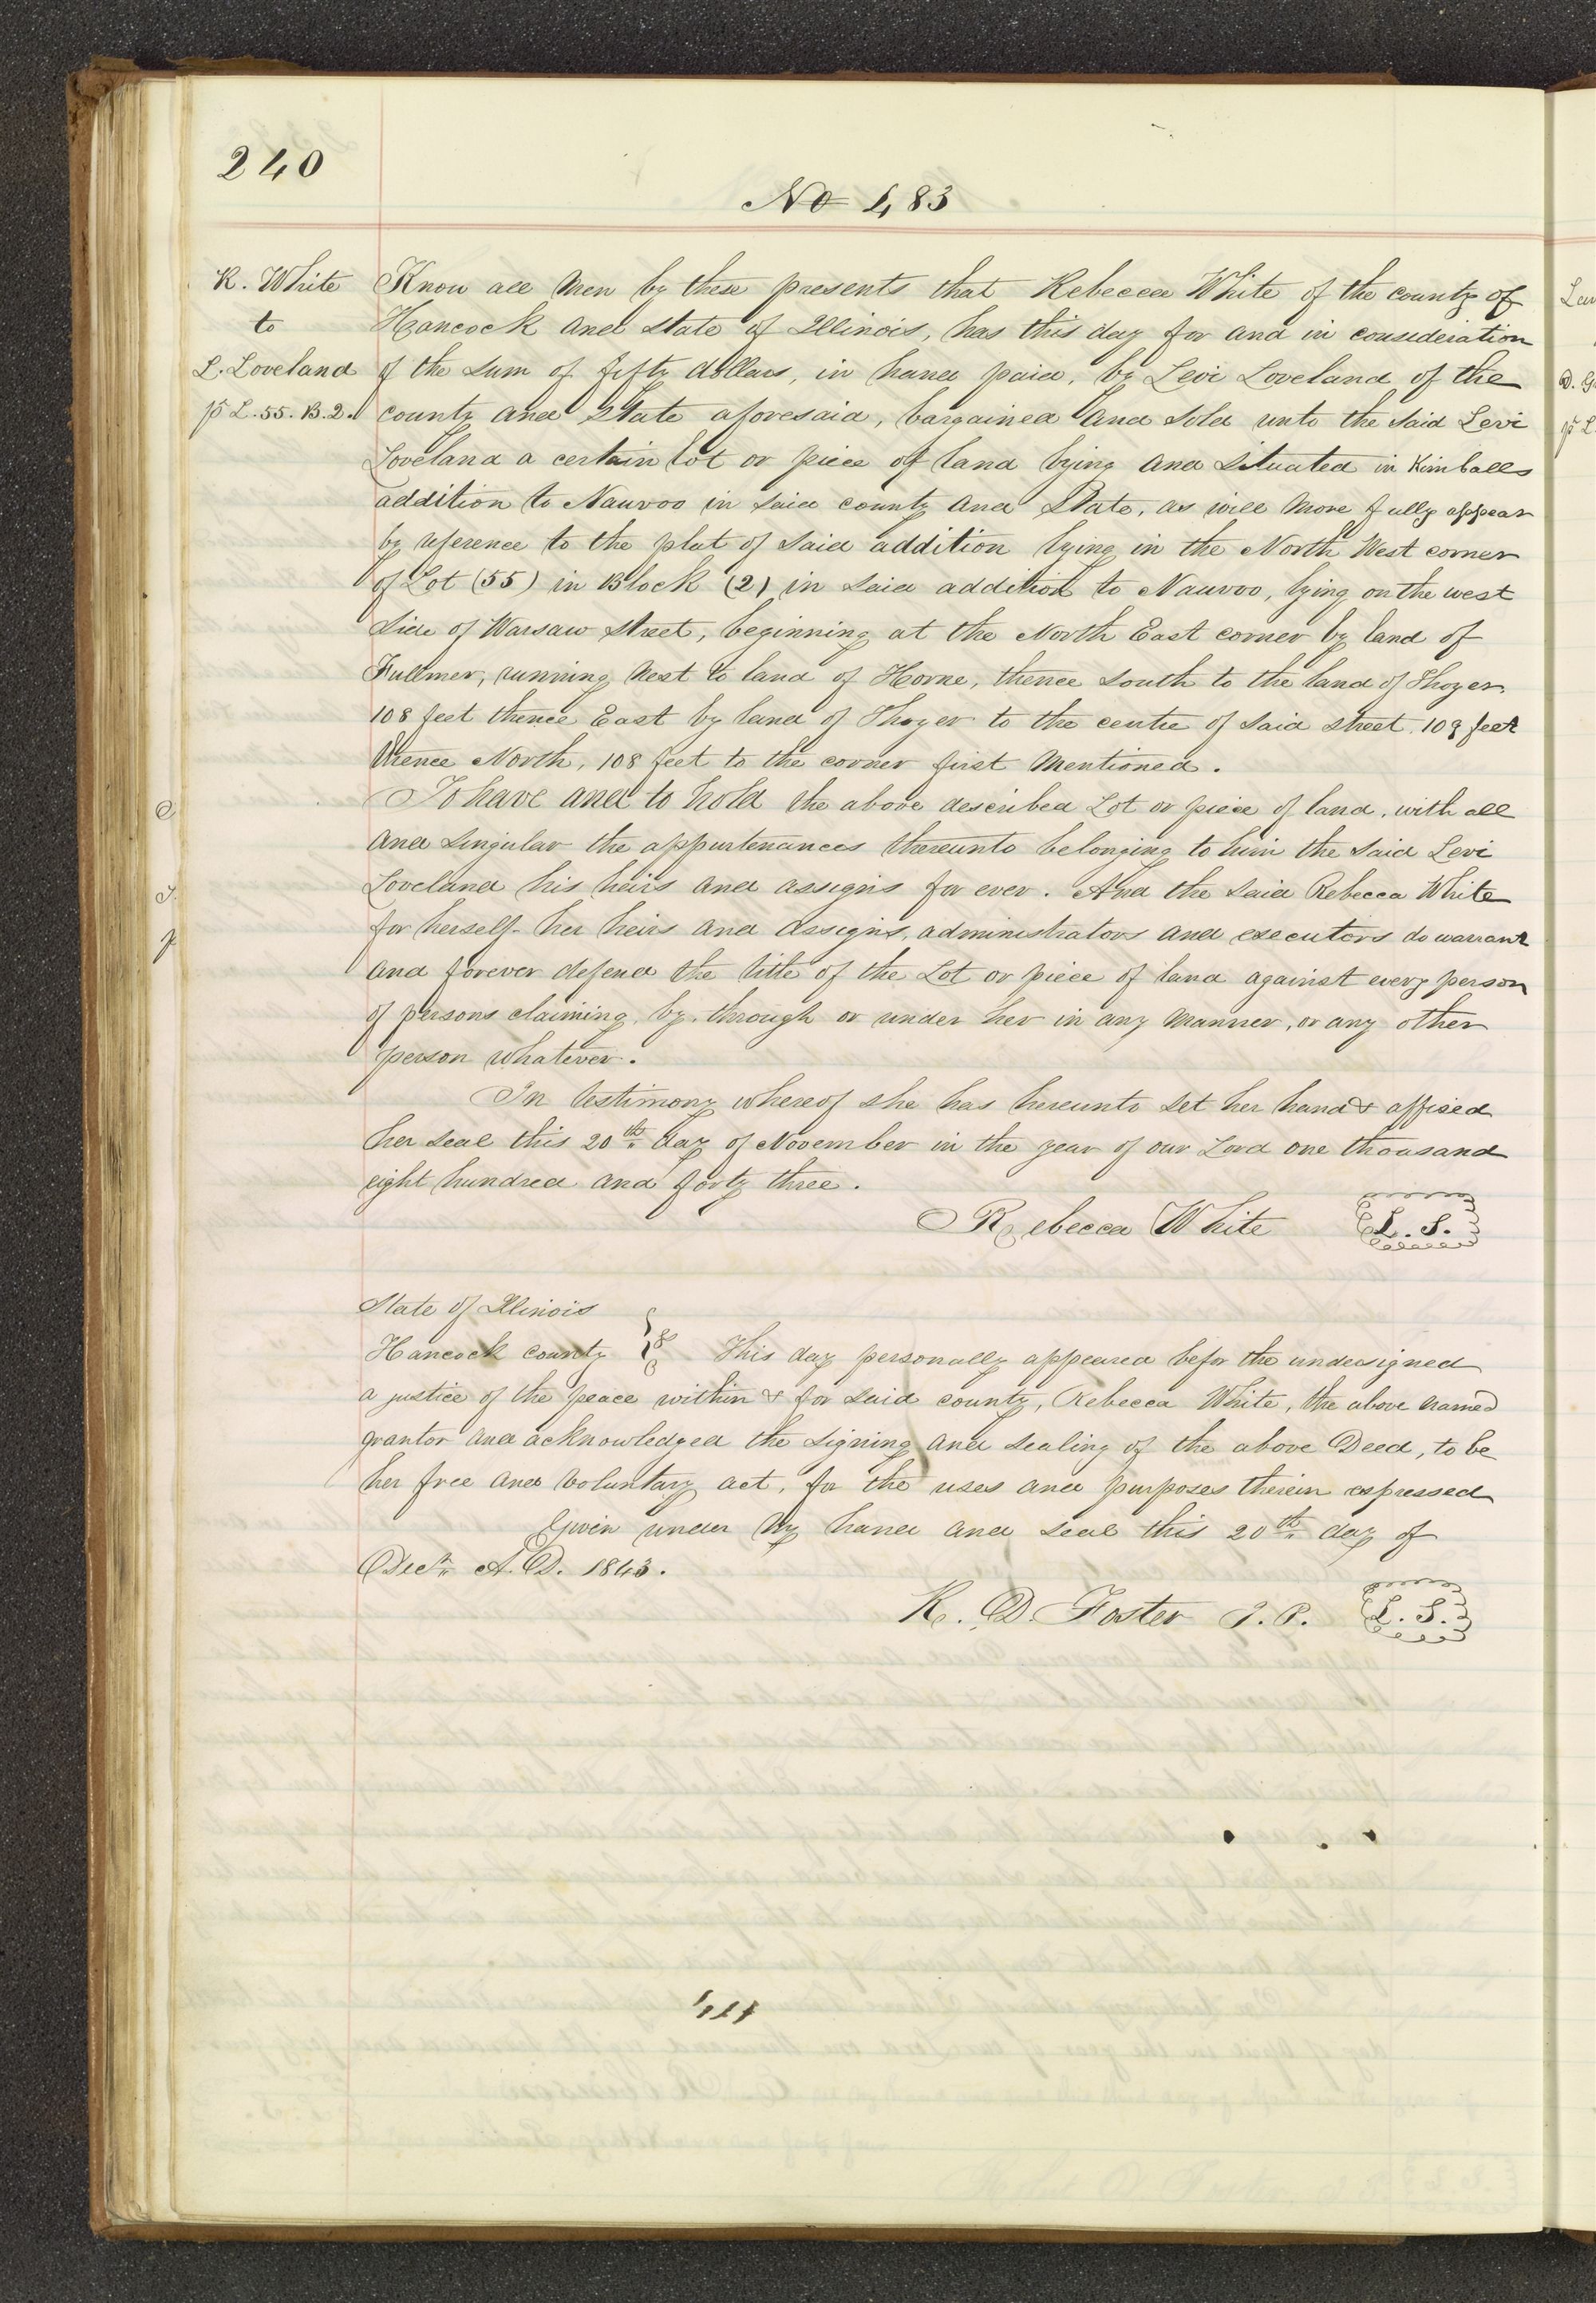 240
No 483
R. White
to
L. Loveland
pt L. 55. B. 2.
Know all Men by these presents that Rebecca White of the county of
Hancock and state of Illinois, has this day for and in consideration
of the sum of fifty dollars, in hand paid, by Levi Loveland of the
county and State aforesaid, bargained and sold unto the said Levi
Loveland a certain lot or piece of land lying and situated in Kimballs
addition to Nauvoo in said county and State, as will more fully appear
by reference to the plat of said addition lying in the North West corner
of Lot (55) in Block (2) in said addition to Nauvoo, lying on the west
side of Warsaw street, beginning at the North East corner by land of
Fullmer, running West to land of Horne, thence south to the land of Thayer
108 feet thence East by land of Thayer to the centre of said street 109 feet
thence North, 108 feet to the corner first mentioned.
To have and to hold the above described Lot or piece of land, with all
and singular the appurtenances thereunto belonging to him the said Levi
Loveland his heirs and assigns for ever. And the said Rebecca White
for herself her heirs and assigns, administrators and executors do warrant
and forever defend the title of the Lot or piece of land against every person
of persons claiming, by, through or under her in any manner, or any other
person whatever.
In testimony whereof she has hereunto set her hand & affixed
her seal this 20th day of November in the year of our Lord one thousand
eight hundred and forty three.
Rebecca White L. S.
State of Illinois
Hancock county } ss This day personally appeared befor the undersigned
a justice of the peace within & for said county, Rebecca White, the above named
grantor and acknowledged the signing and sealing of the above Deed, to be
her free and voluntary act, for the uses and purposes therein expressed
Given under my hand and seal this 20th day of
Decr A. D. 1843.
R. D. Foster J. P. L. S.